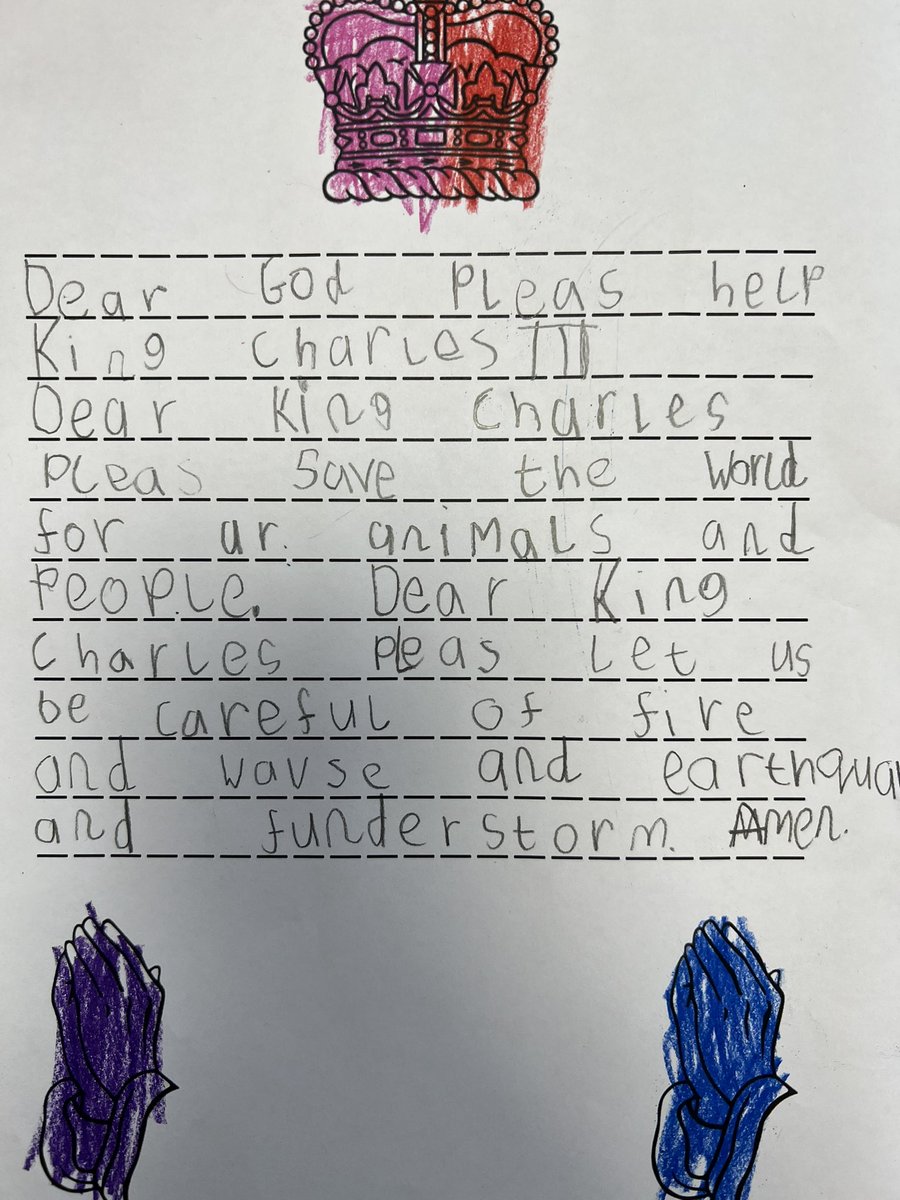 Dear God Pleas help
King Charles III
Dear King Charles
pleas save the world
for ur. animals and
People. Dear King
Charles pleas let us
be careful of fire
and wavse and earthqua
and funderstorm. Amen.